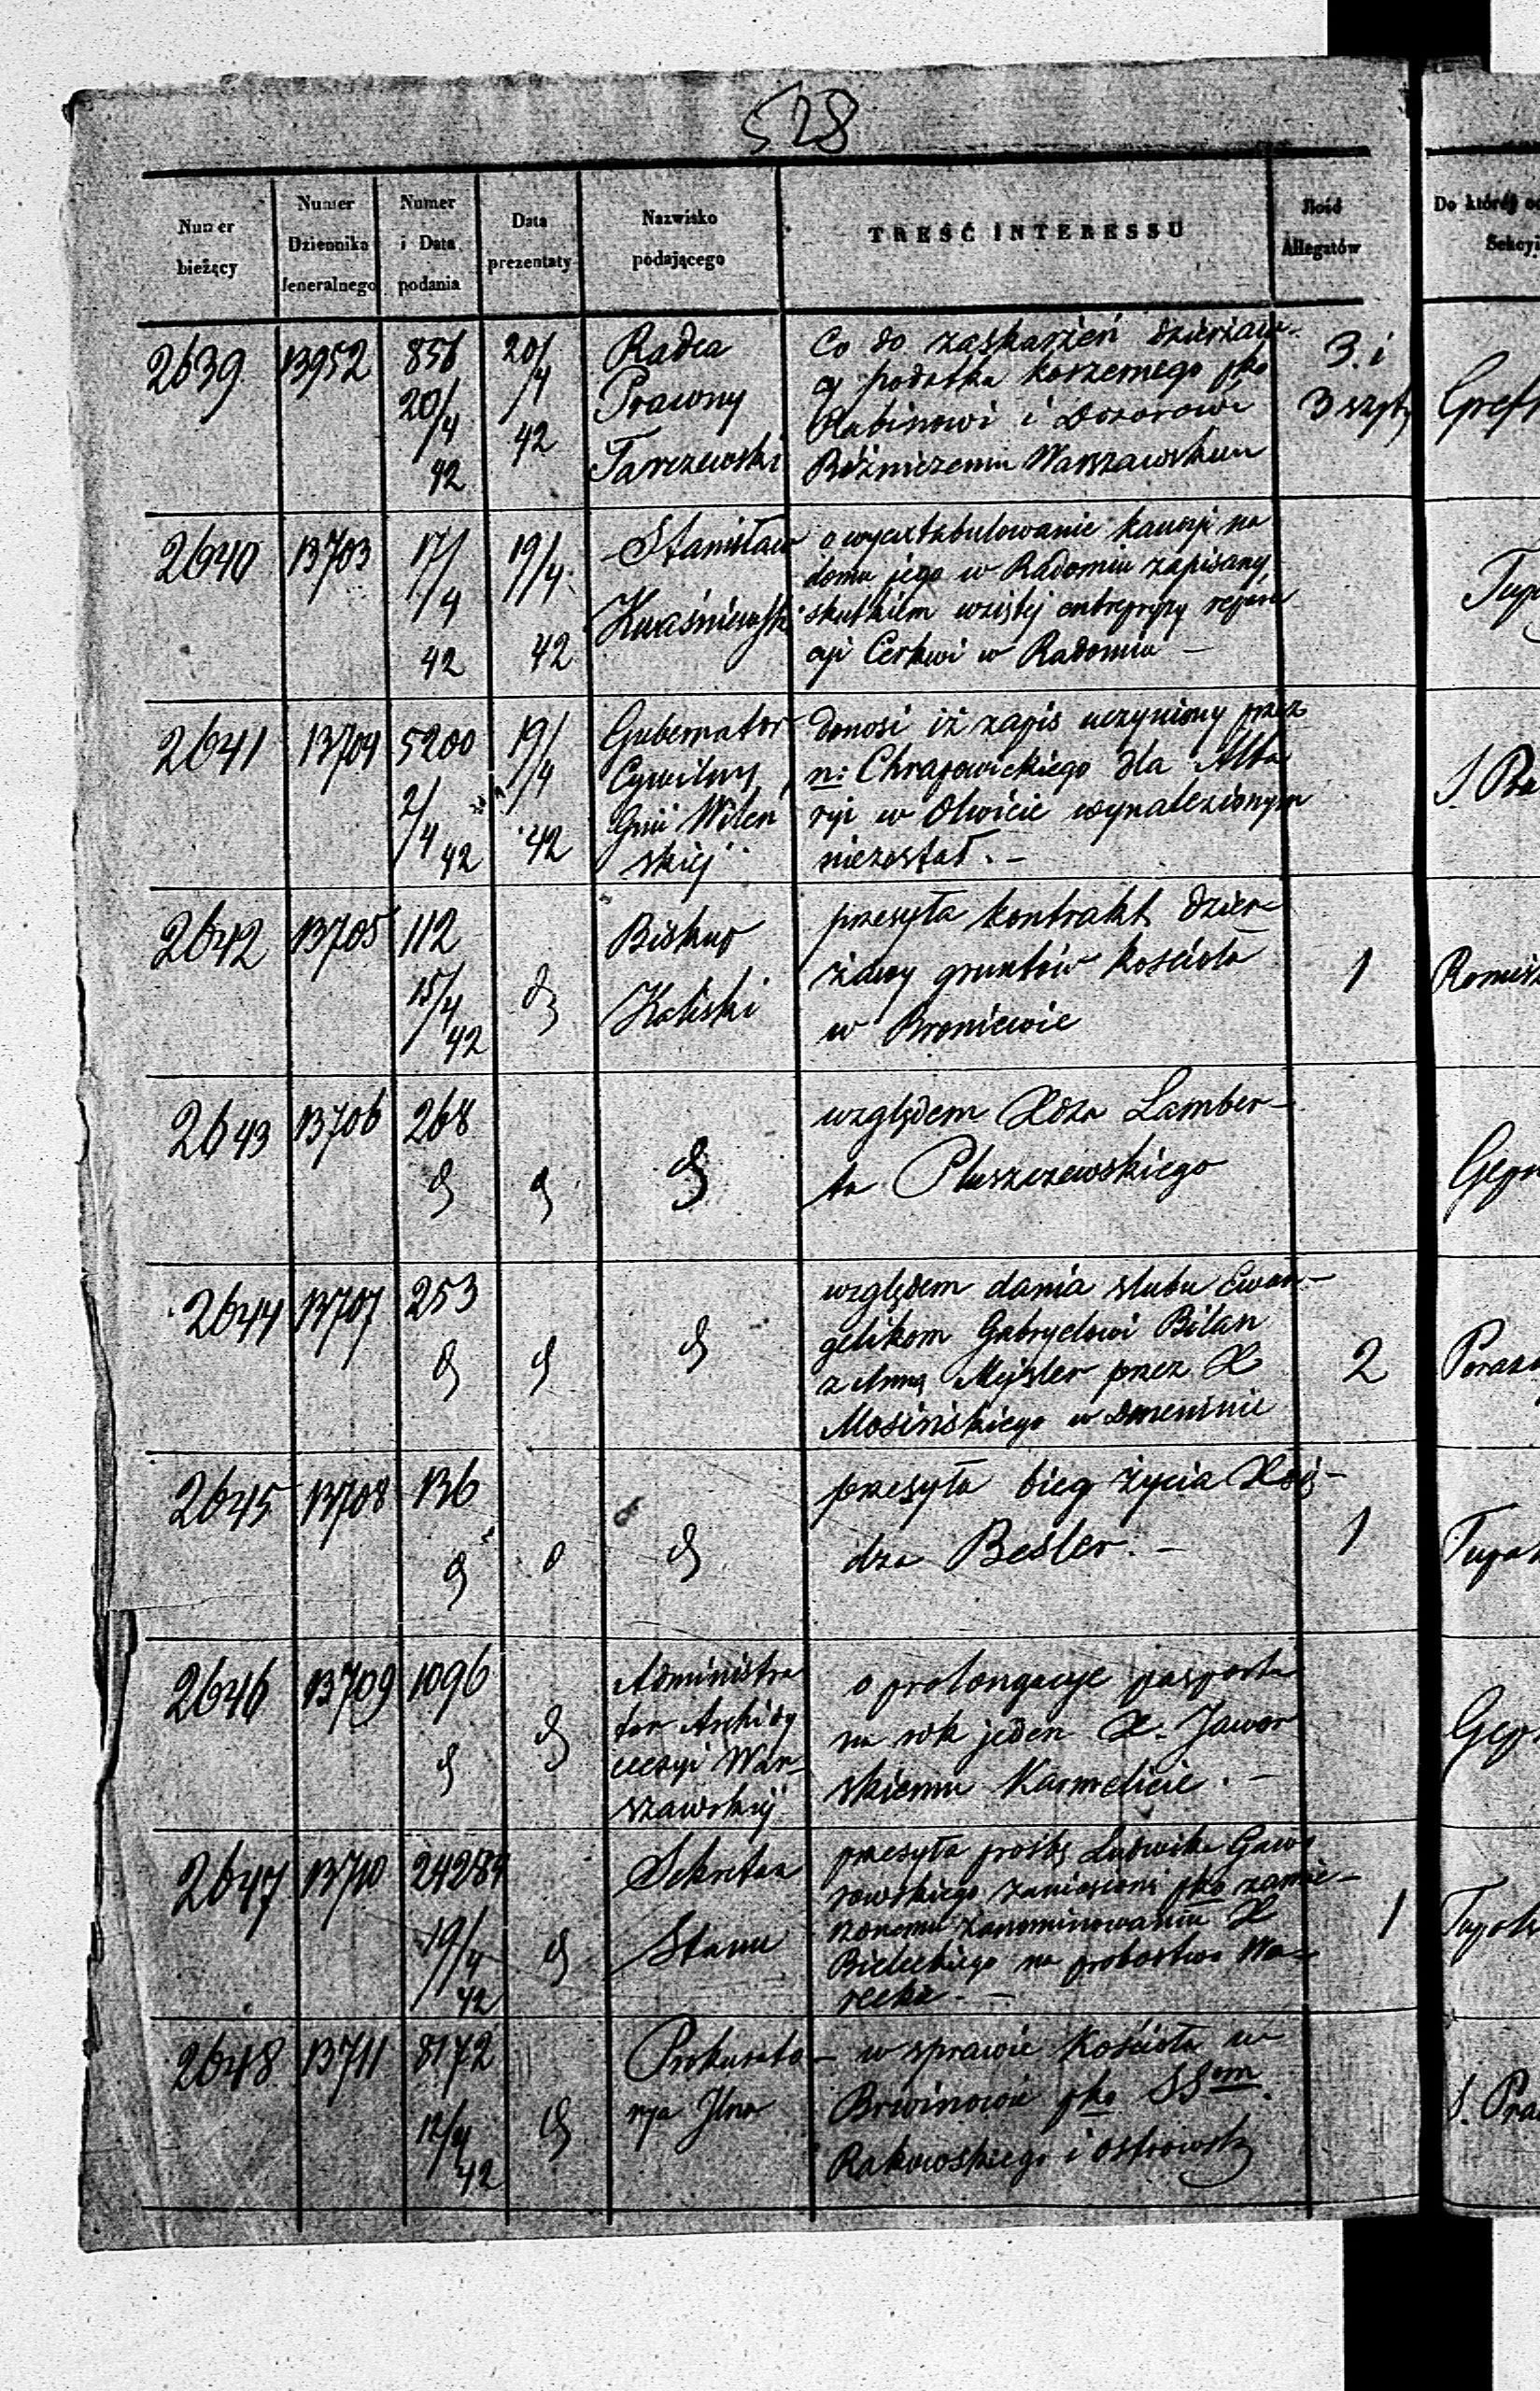 528
Numer bieżący
Numer Dziennika Jeneralnego
Numer i Data podania
Data prezentaty
Nazwisko podającego
TREŚĆ INTERESSU
Ilość Allegatów
Do której
Sekcyi
2639 13952 856 20/4 42 20/4 42
Radca
Prawny
Tarczewski
Co do zaskarżeń dzierżaw-
cy podatku koszernego pko
Rabinowi i Dozorowi
Bóżniczemu Warszawskiemu
3. i
3 szyty
2640 13703 17/4 42 19/4 42
Stanisław
Kwaśniewski
o wyextabulowanie kaucji na
domu jego w Radomiu zapisany
skutkiem wziętej entrepryzy repera
cyi Cerkwi w Radomiu –
2641 13704 5200 2/4 42 19/4 42
Gubernator
Cywilny
Gnii Wileń
skiej
donosi iż zapis uczyniony przez
n: Chrapowickiego dla Alta
ryi w Olwicie wynalezionym
niezostał. –
2642 13705 112 15/4 42 d
Biskup
Kaliski
przesyła kontrakt dzier-
żawy gruntów kościoła
w Broniewie
1
2643 13706 268 d d d
względem Xdza Lamber-
ta Pluszczewskiego
2644 13707 253 d d d
względem dania slubu Ewan-
gelikom Gabryelowi Bilan
z Anną Mejsler przez X
Mosińskiego w
2
2645 13708 136 d d d
przesyła bieg życia Xię-
dza Besler. –
1
2646 13709 1096 d d
Administra
tor Archidy
ecezyi War-
szawskiej
o prolongacye pasportu
na rok jeden X. Jawor
skiemu Karmelicie. –
2647 13710 24284 19/4 42 d
Sekretarz
Stanu
przesyła prośbę Ludwika Gawa
rowskiego zaniesioną pko zamie-
rzonemu zanominowaniu X
Bieleckiego na probostwo Wa-
reckie. –
1
2648 13711 8172 12/4 42 d
Prokurato-
rya Jlna
w sprawie Kościoła w
Brwinowie pko SSom.
Rakowskiego i Ostrowsk